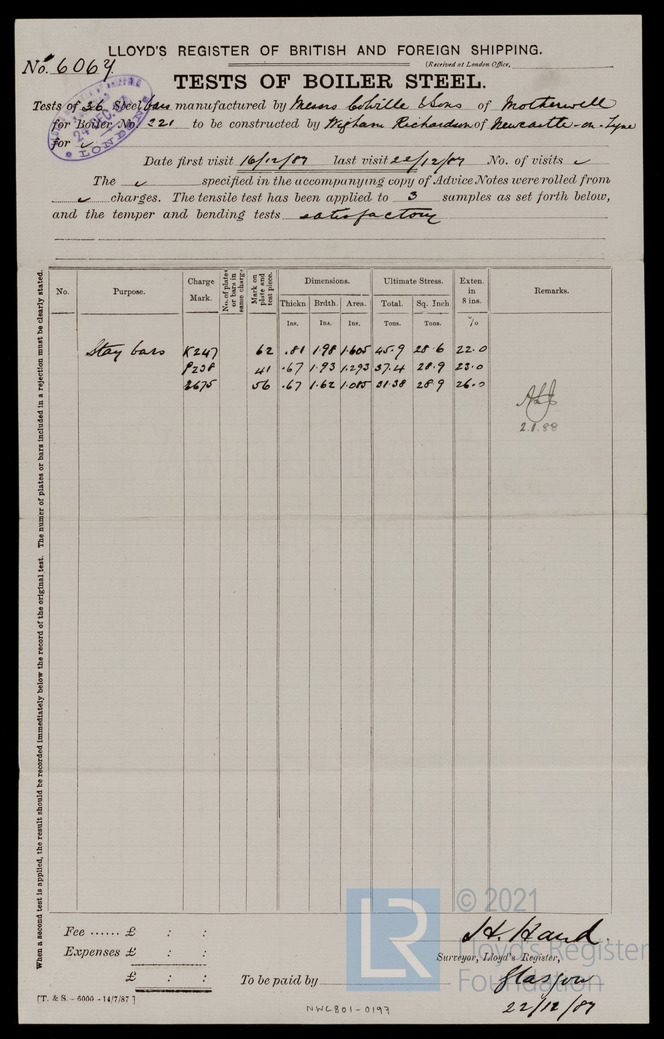 LLOYD'S REGISTER OF BRITISH AND FOREIGN SHIPPING.
No. 6069
(Received at London Office,
TESTS OF BOILER STEEL.
Tests of 36 Steel bars manufactured by Messrs Colville & Sons of Motherwell
for Boiler No. 221 to be constructed by Wigham Richardson of Newcastle-on-Tyne
for ✓
24 DEC
LONDON
Date first visit 16/12/87 last visit 22/12/87 No. of visits ✓
The ✓ specified in the accompanying copy of Advice Notes were rolled from
✓ charges. The tensile test has been applied to 3 samples as set forth below,
and the temper and bending tests satisfactory
When a second test is applied, the result should be recorded immediately below the record of the original test. The numer of plates or bars included in a rejection must be clearly stated.
No. Purpose. Charge Mark. No. of plates or bars in same charge Mark on plate and test piece. Dimensions. Ultimate Stress. Exten. in 8 ins. Remarks.
Thickn Brdth. Area. Total. Sq. Inch
Ins. Ins. Ins. Tons. Tons. %
Stay bars K247 62 .81 1.98 1.605 45.9 28.6 22.0
P238 41 .67 1.93 1.293 37.4 28.9 23.0
2675 56 .67 1.62 1.085 31.38 28.9 26.0
2.1.88
Fee ...... £ : :
Expenses £ : :
£ : :
To be paid by
H. Hand.
Surveyor, Lloyd's Register,
Glasgow
22/12/87
[T. & S. - 6000 - 14/7/87]
NWC801-0197
LR
© 2021
Lloyd's Register
Foundation